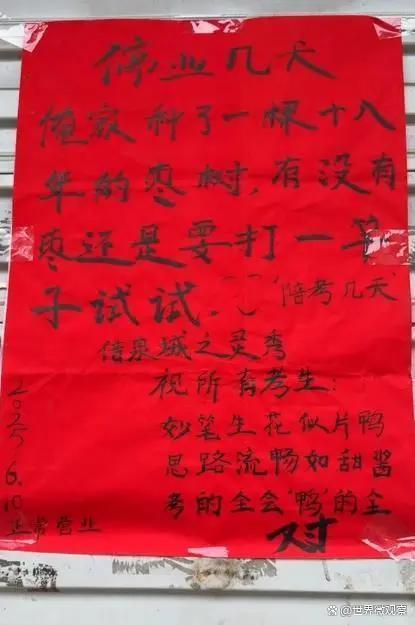 停业几天
俺家种了一棵十八
年的枣树，有没有
枣还是要打一竿
子试试。
陪考几天
借泉城之灵秀
祝所有考生：
妙笔生花似片鸭
思路流畅如甜酱
考的全会“鸭”的全
对
2025
6.10
正常营业
@世界微观察